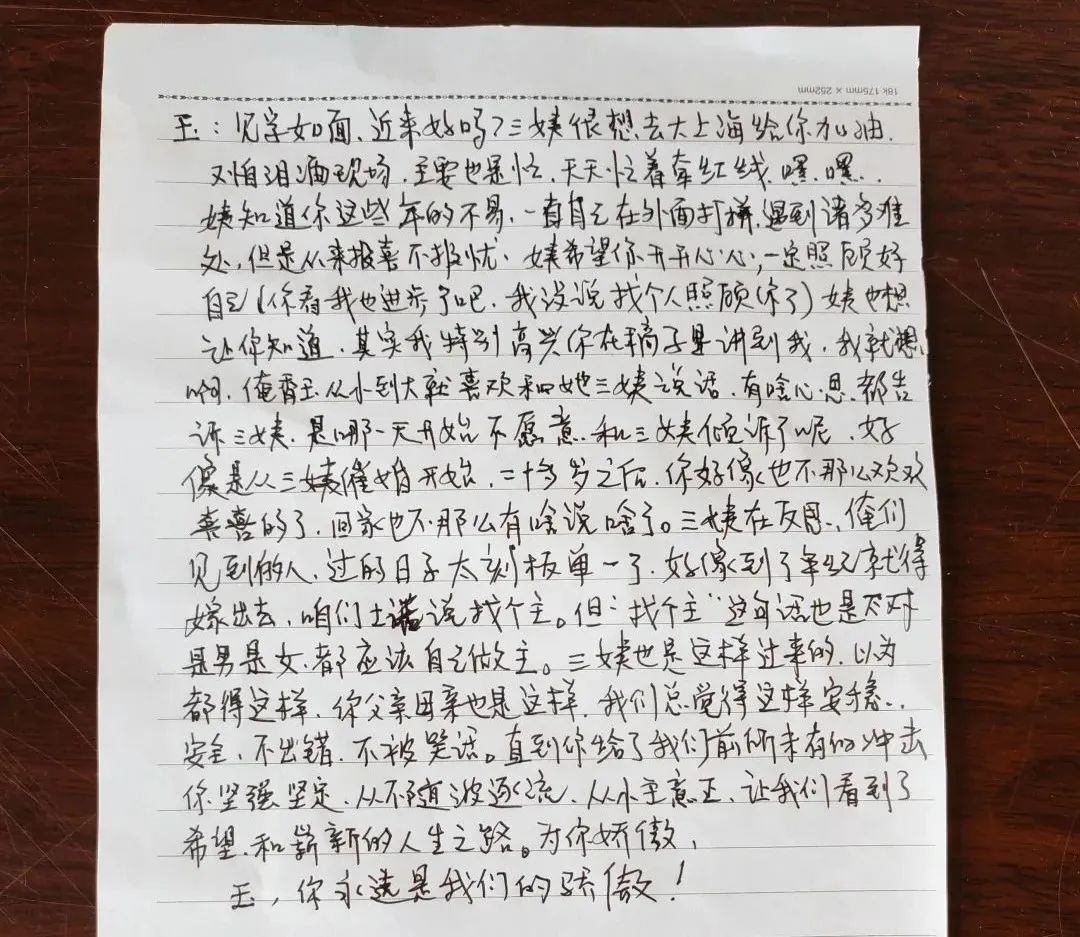 18k 175mm × 252mm
玉：见字如面，近来好吗？三姨很想去大上海给你加油，
又怕泪洒现场，主要也是忙，天天忙着牵红线，嘿，嘿..
姨知道你这些年的不易，一直自己在外面打拼，遇到诸多难
处，但是从来报喜不报忧，姨希望你开开心心，一定照顾好
自己（你看我也进步了吧，我没说找个人照顾你了）姨也想
让你知道，其实我特别高兴你在稿子里讲到我，我就想
啊，俺香玉从小到大就喜欢和她三姨说话，有啥心思，都告
诉三姨，是哪一天开始不愿意和三姨倾诉了呢，好
像是从三姨催婚开始，二十多岁之后，你好像也不那么欢欢
喜喜的了，回家也不那么有啥说啥了。三姨在反思..俺们
见到的人，过的日子太刻板单一了，好像到了年纪就得
嫁出去，咱们土话说找个主。但“找个主”这句话也是不对
是男是女，都应该自己做主。三姨也是这样过来的，以为
都得这样，你父亲母亲也是这样，我们总觉得这样安稳..
安全，不出错，不被笑话。直到你给了我们前所未有的冲击
你坚强坚定，从不随波逐流，从小主意正，让我们看到了
希望，和崭新的人生之路。为你骄傲，
玉，你永远是我们的骄傲！